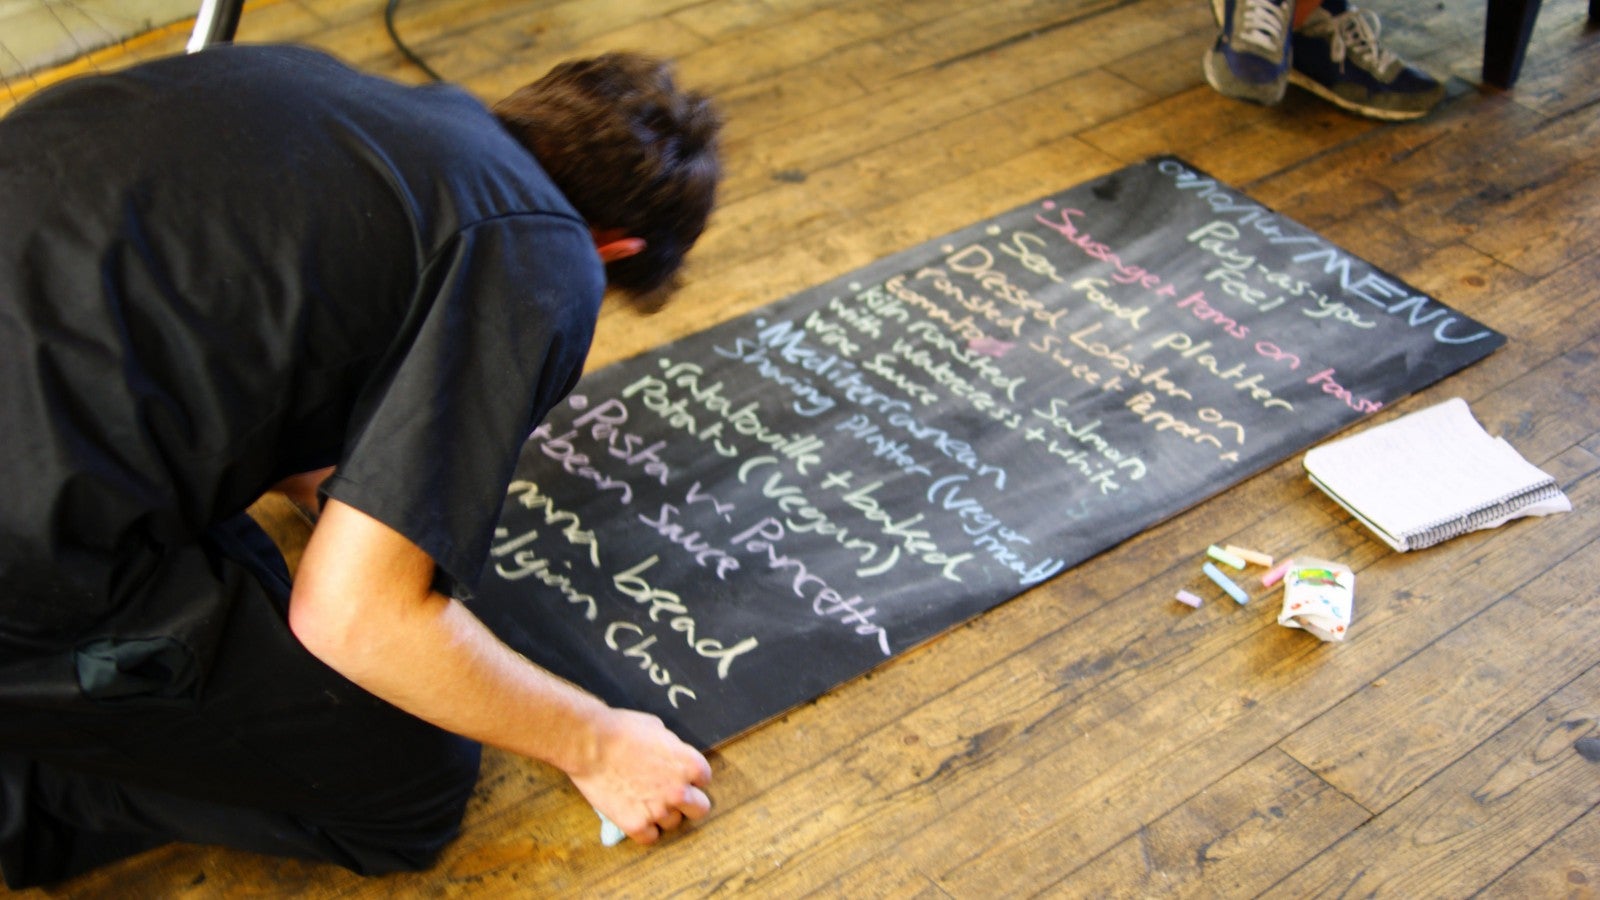 03/10/14/MENU
Pay-as-you
Feel
• Sausage + toms on toast
• Sea Food platter
• Dressed Lobster on
roasted Sweet Pepper +
tomato
• Kiln roasted Salmon
with watercress + white
wine sauce
• Mediterranean
Sharing platter (veg or meat)
• ratatouille + baked
Potats (vegan)
• Pasta w. Pancetta
+ bean sauce
bread
Choc